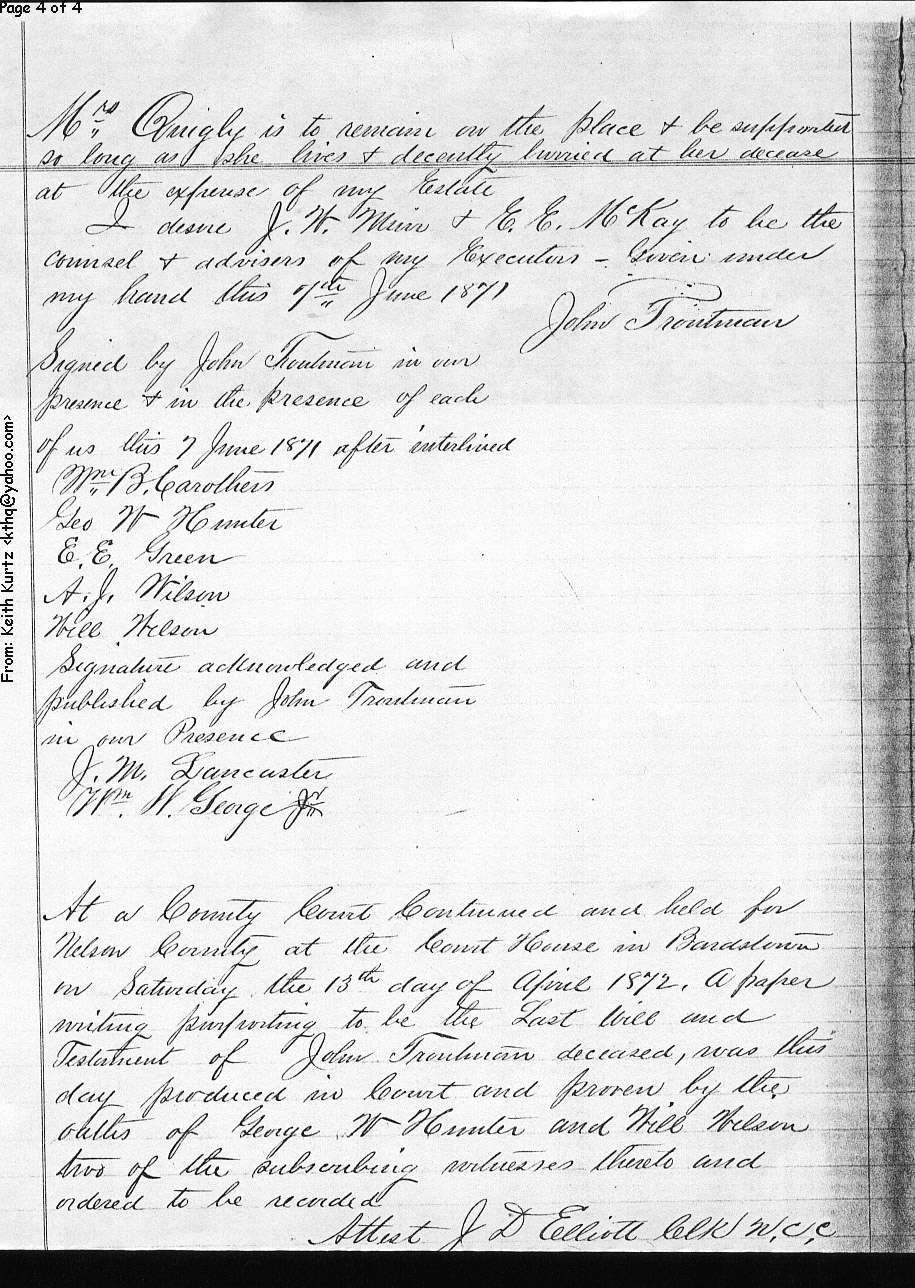 Page 4 of 4
From: Keith Kurtz <kthq@yahoo.com>
Mrs Quigly is to remain on the place & be supported
so long as she lives & decently burried at her decease
at the expense of my Estate
I desire J. W. Muir & E. E. McKay to be the
counsel & advisers of my Executors - Given under
my hand this 7th June 1871
John Troutman
Signed by John Troutman in our
presence & in the presence of each
of us this 7 June 1871 after interlined
Wm B. Carothers
Geo W Hunter
E. E. Green
A. J. Wilson
Will Wilson
Signature acknowledged and
published by John Troutman
in our Presence
J. M. Lancaster
Wm. W. George Jr
At a County Court Continued and held for
Nelson County at the Court House in Bardstown
on Saturday the 13th day of April 1872. A paper
writing purporting to be the Last Will and
Testament of John Troutman deceased, was this
day produced in Court and proven by the
oaths of George W Hunter and Will Wilson
two of the subscribing witnesses thereto and
ordered to be recorded
Attest J D Elliott Clk N.C.C